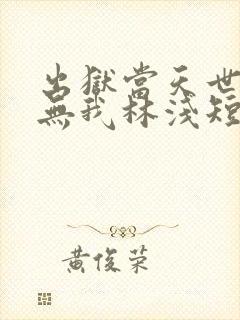 出獄當天世
無我林淺短
黃俊荣